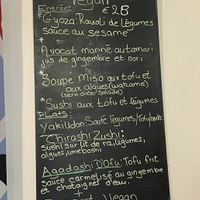 Vegan
Entrées €28
*Gyoza: Ravioli de légumes
sauce au sesame
+
Avocat mariné au tamari
jus de gingembre et nori
Soupe Miso au tofu et
aux algues (wakame)
*Sushi aux tofu et légumes
PLATS:
Yakiudon Sauté légumes/tofu
Chirashi Zushi:
sushi sur lit de riz, légumes,
algues, umeboshi
Agadashi Tofu: Tofu frit
sauce caramélisé au gingembre
et chataignes d'eau.
Vegan